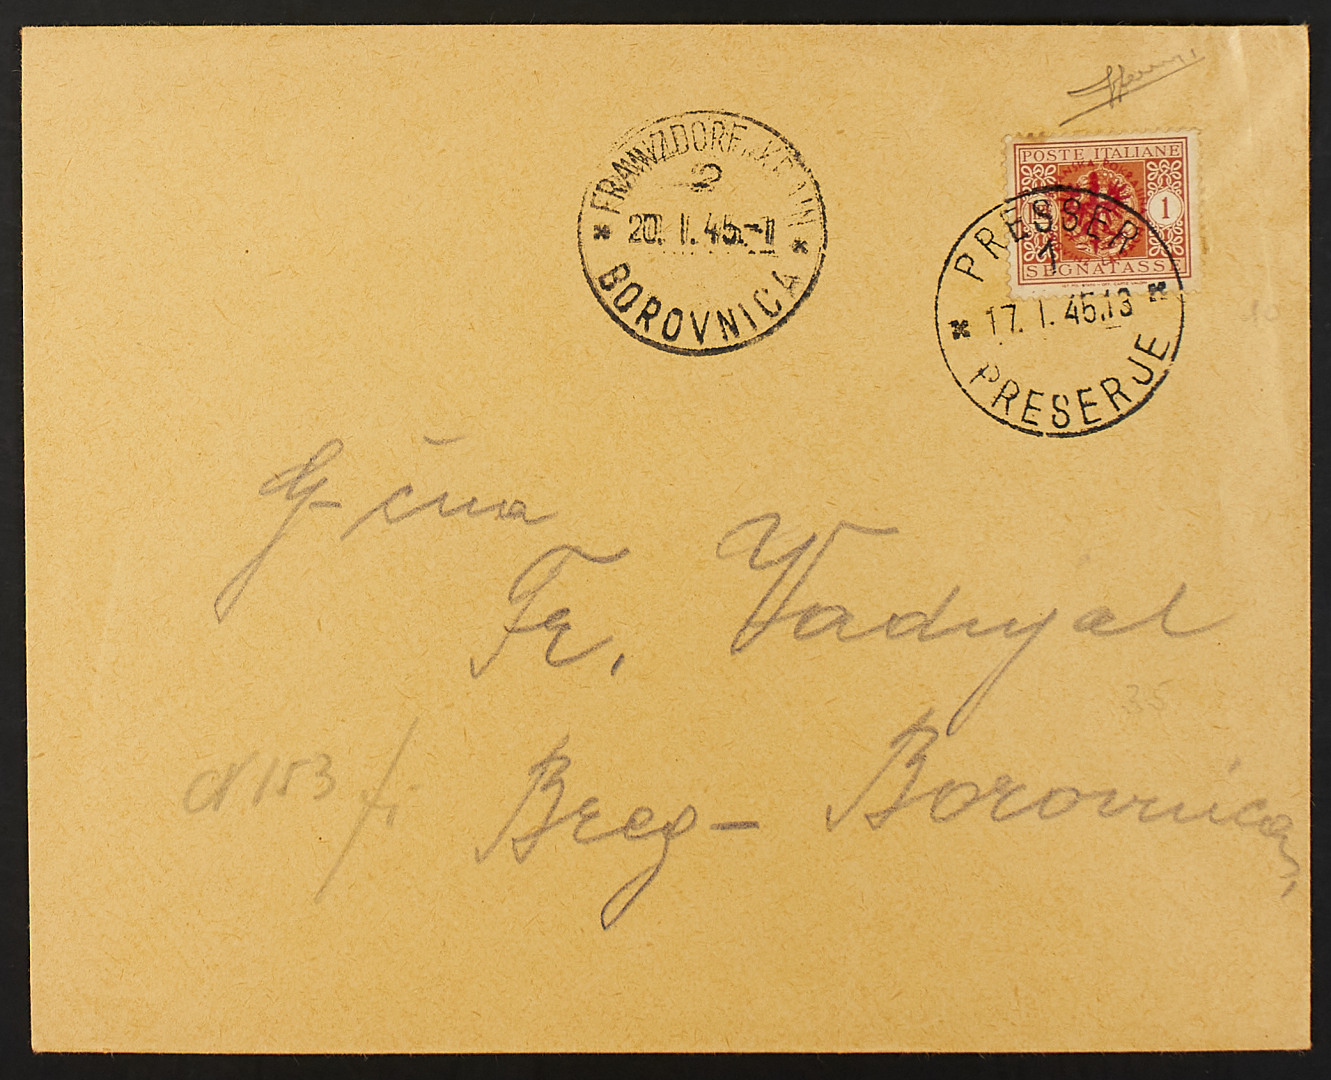 FRANZDORF
2
20. I. 45.-1
BOROVNICA
POSTE ITALIANE
1
SEGNATASSE
PRESSER
1
17. I. 45.13
PRESERJE
G-čna
Fr. Vadnjal
35
N 153
Breg- Borovnica,